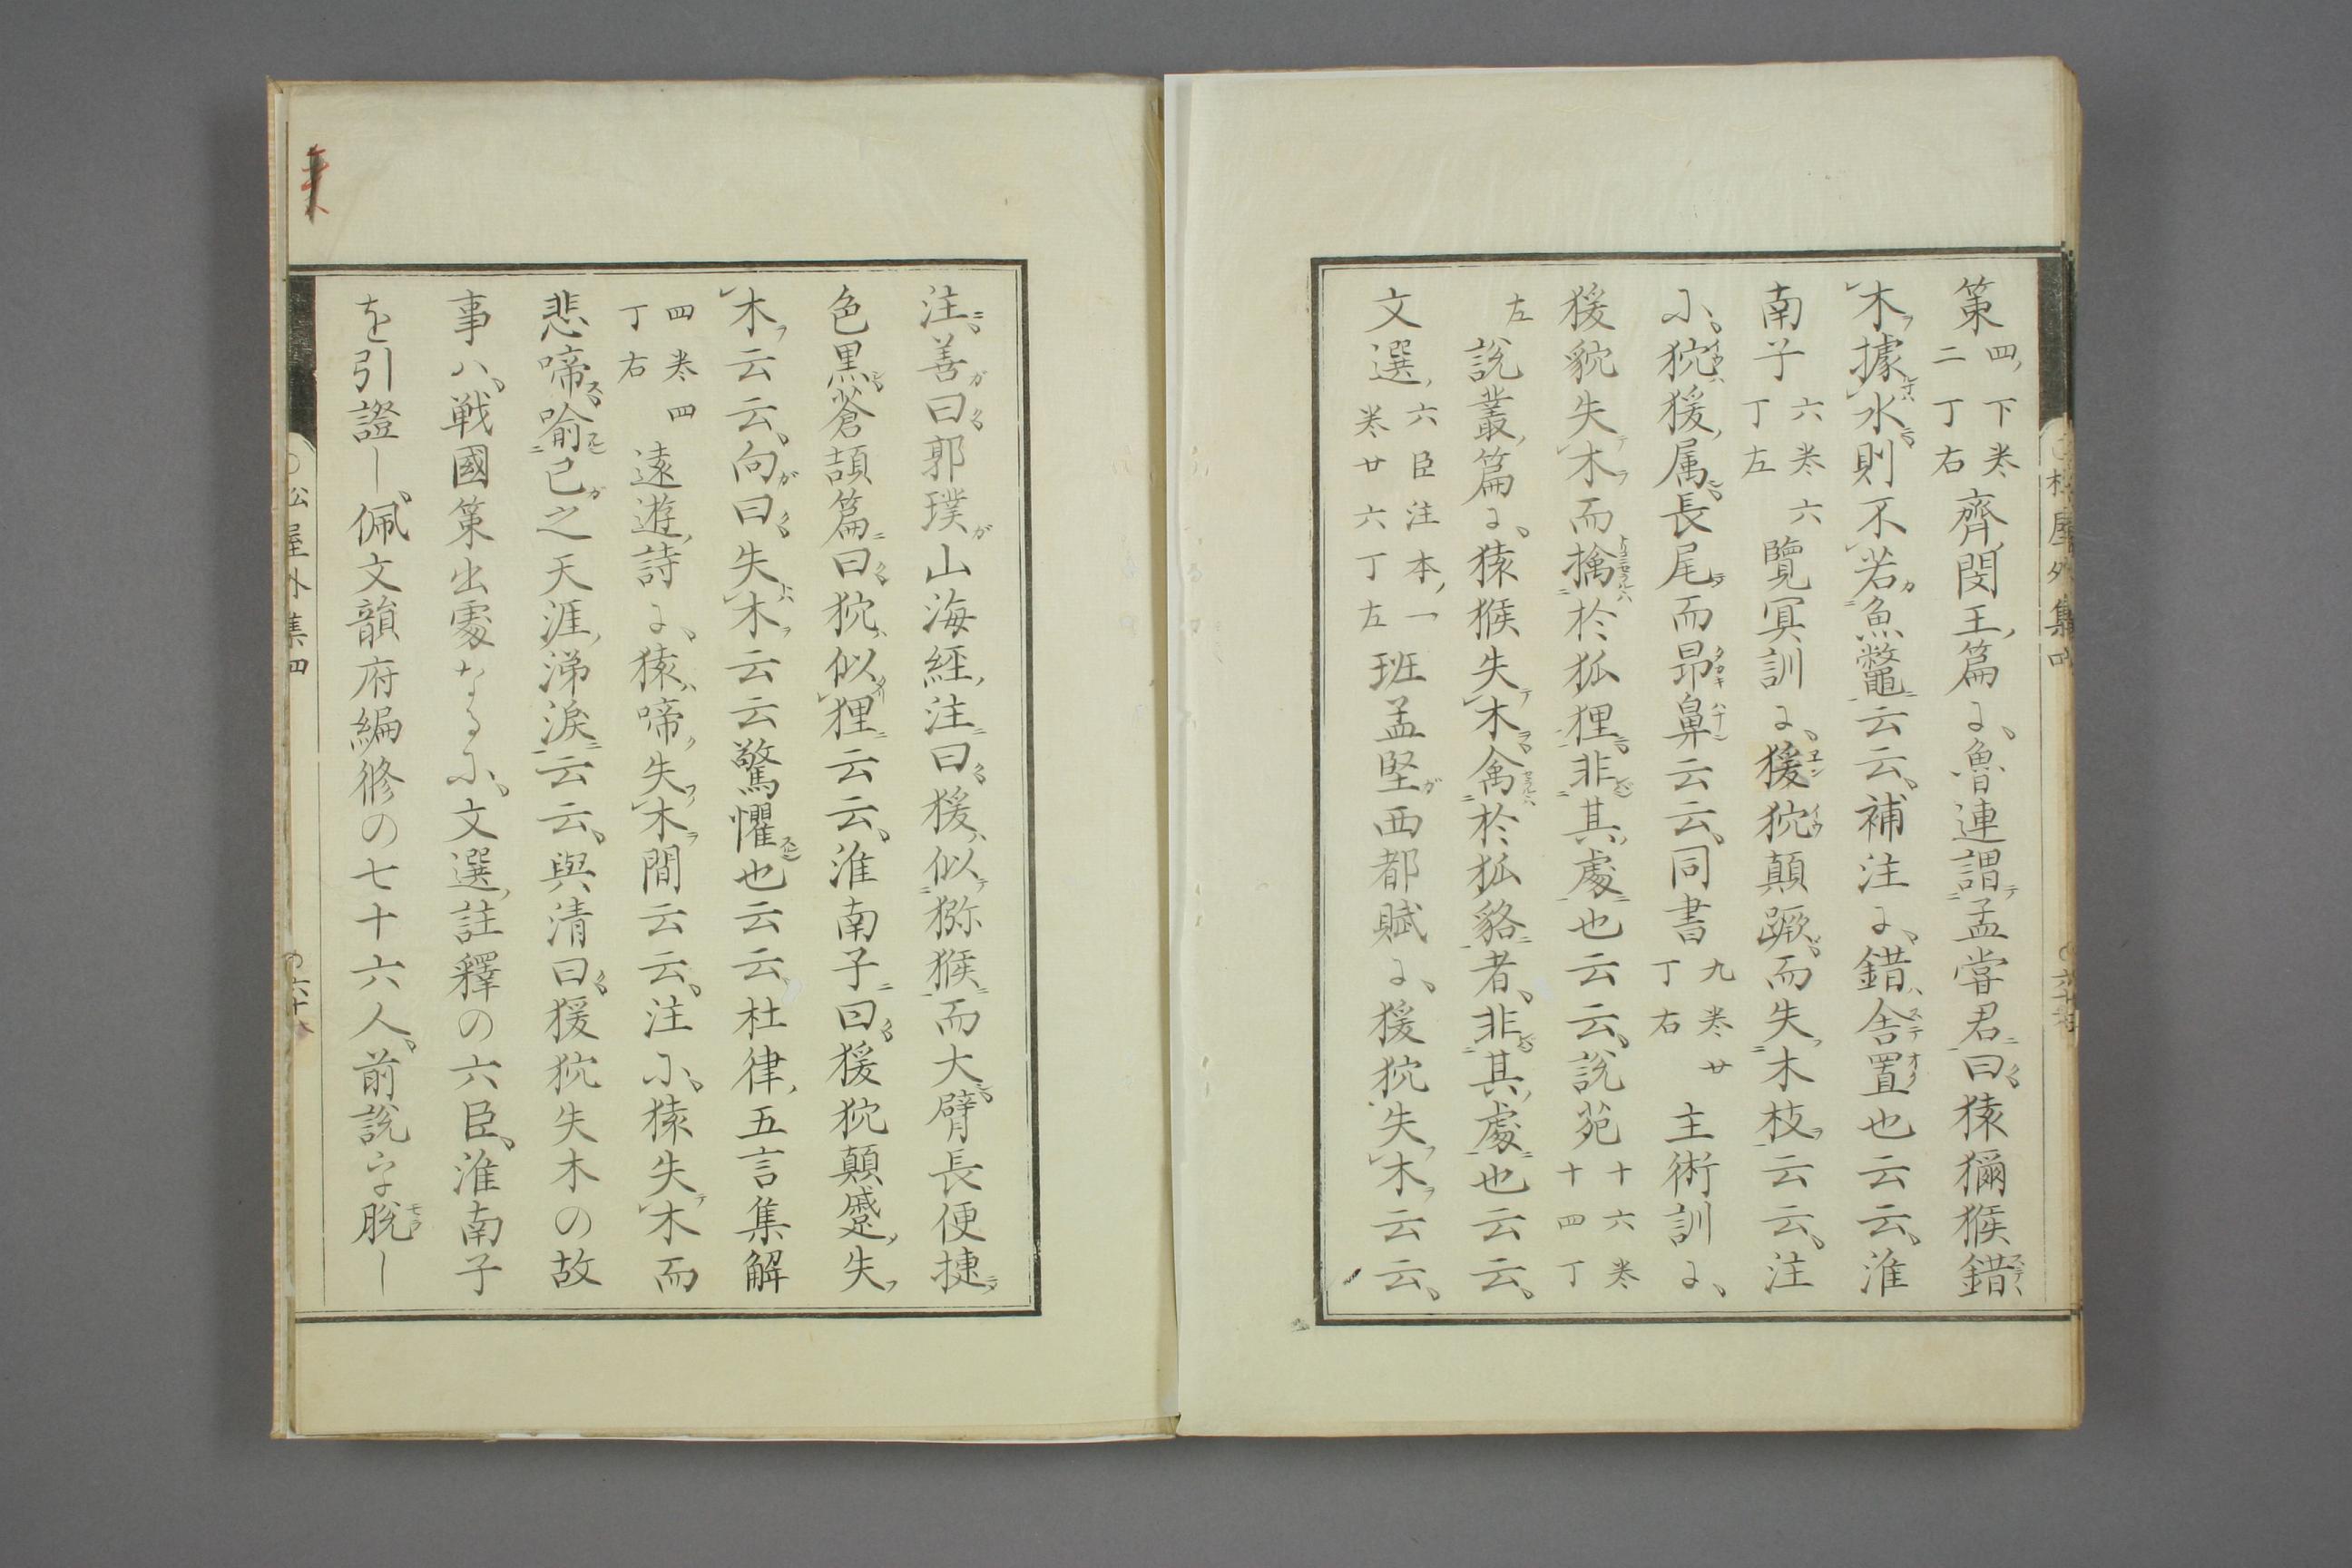 策四下巻二丁右齊閔王篇に魯連謂孟甞君曰猿獼猴錯
木據水則不若魚鼈云云補注に錯舍置也云云淮
南子六巻六丁左覽冥訓に猨狖顛蹶而失木枝云云注
に狖猨属長尾而昻鼻云云同書九巻廿丁右主術訓に
猨狖失木而擒於狐狸非其處也云云說苑十六巻十四丁
左說叢篇に猿猴失木禽於狐貉者非其處也云云
文選六臣注本一巻廿六丁左班孟堅西都賦に猨狖失木云云
注善曰郭璞山海經注曰猨似猕猴而大臂長便捷
色黒蒼頡篇曰狖似狸云云淮南子曰猨狖顛蹙失
木云云向曰失木云云驚懼也云云杜律五言集解
四巻四丁右遠遊詩に猿啼失木間云云注に猿失木而
悲啼喻己之天涯涕淚云云與清曰猨狖失木の故
事ハ戦國策出處なるに文選註釋の六臣淮南子
を引證し佩文韻府編修の七十六人前說を脫し
松屋外集四